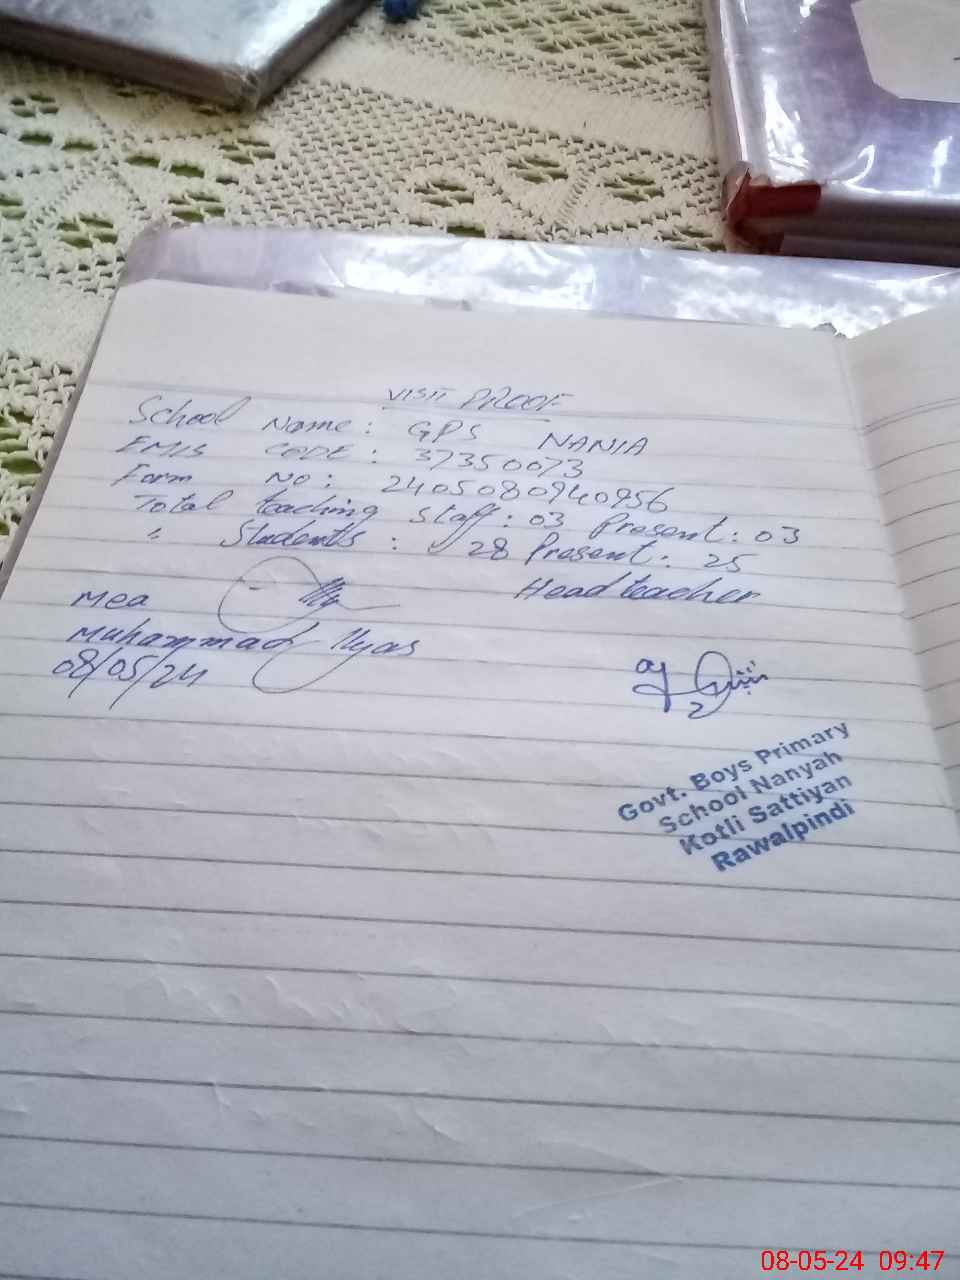 VISIT PROOF
School Name: GPS NANIA
EMIS CODE: 37350073
Form No: 2405080940956
Total teaching staff: 03 Present: 03
" Students: 28 Present: 25
Head teacher
Mea
Muhammad Ilyas
08/05/24
Govt. Boys Primary
School Nanyah
Kotli Sattiyan
Rawalpindi
08-05-24 09:47